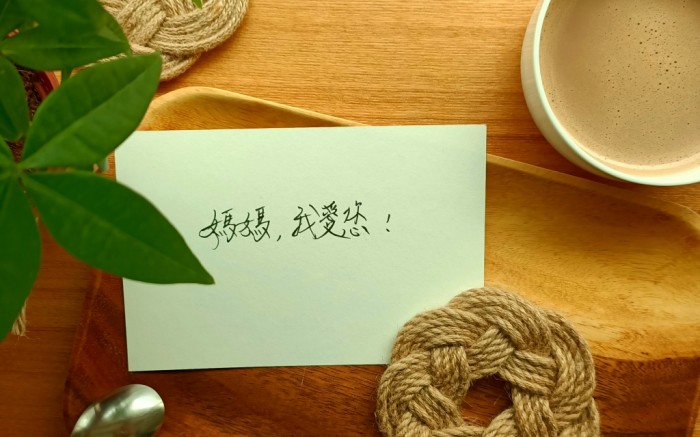 媽媽，我愛您！